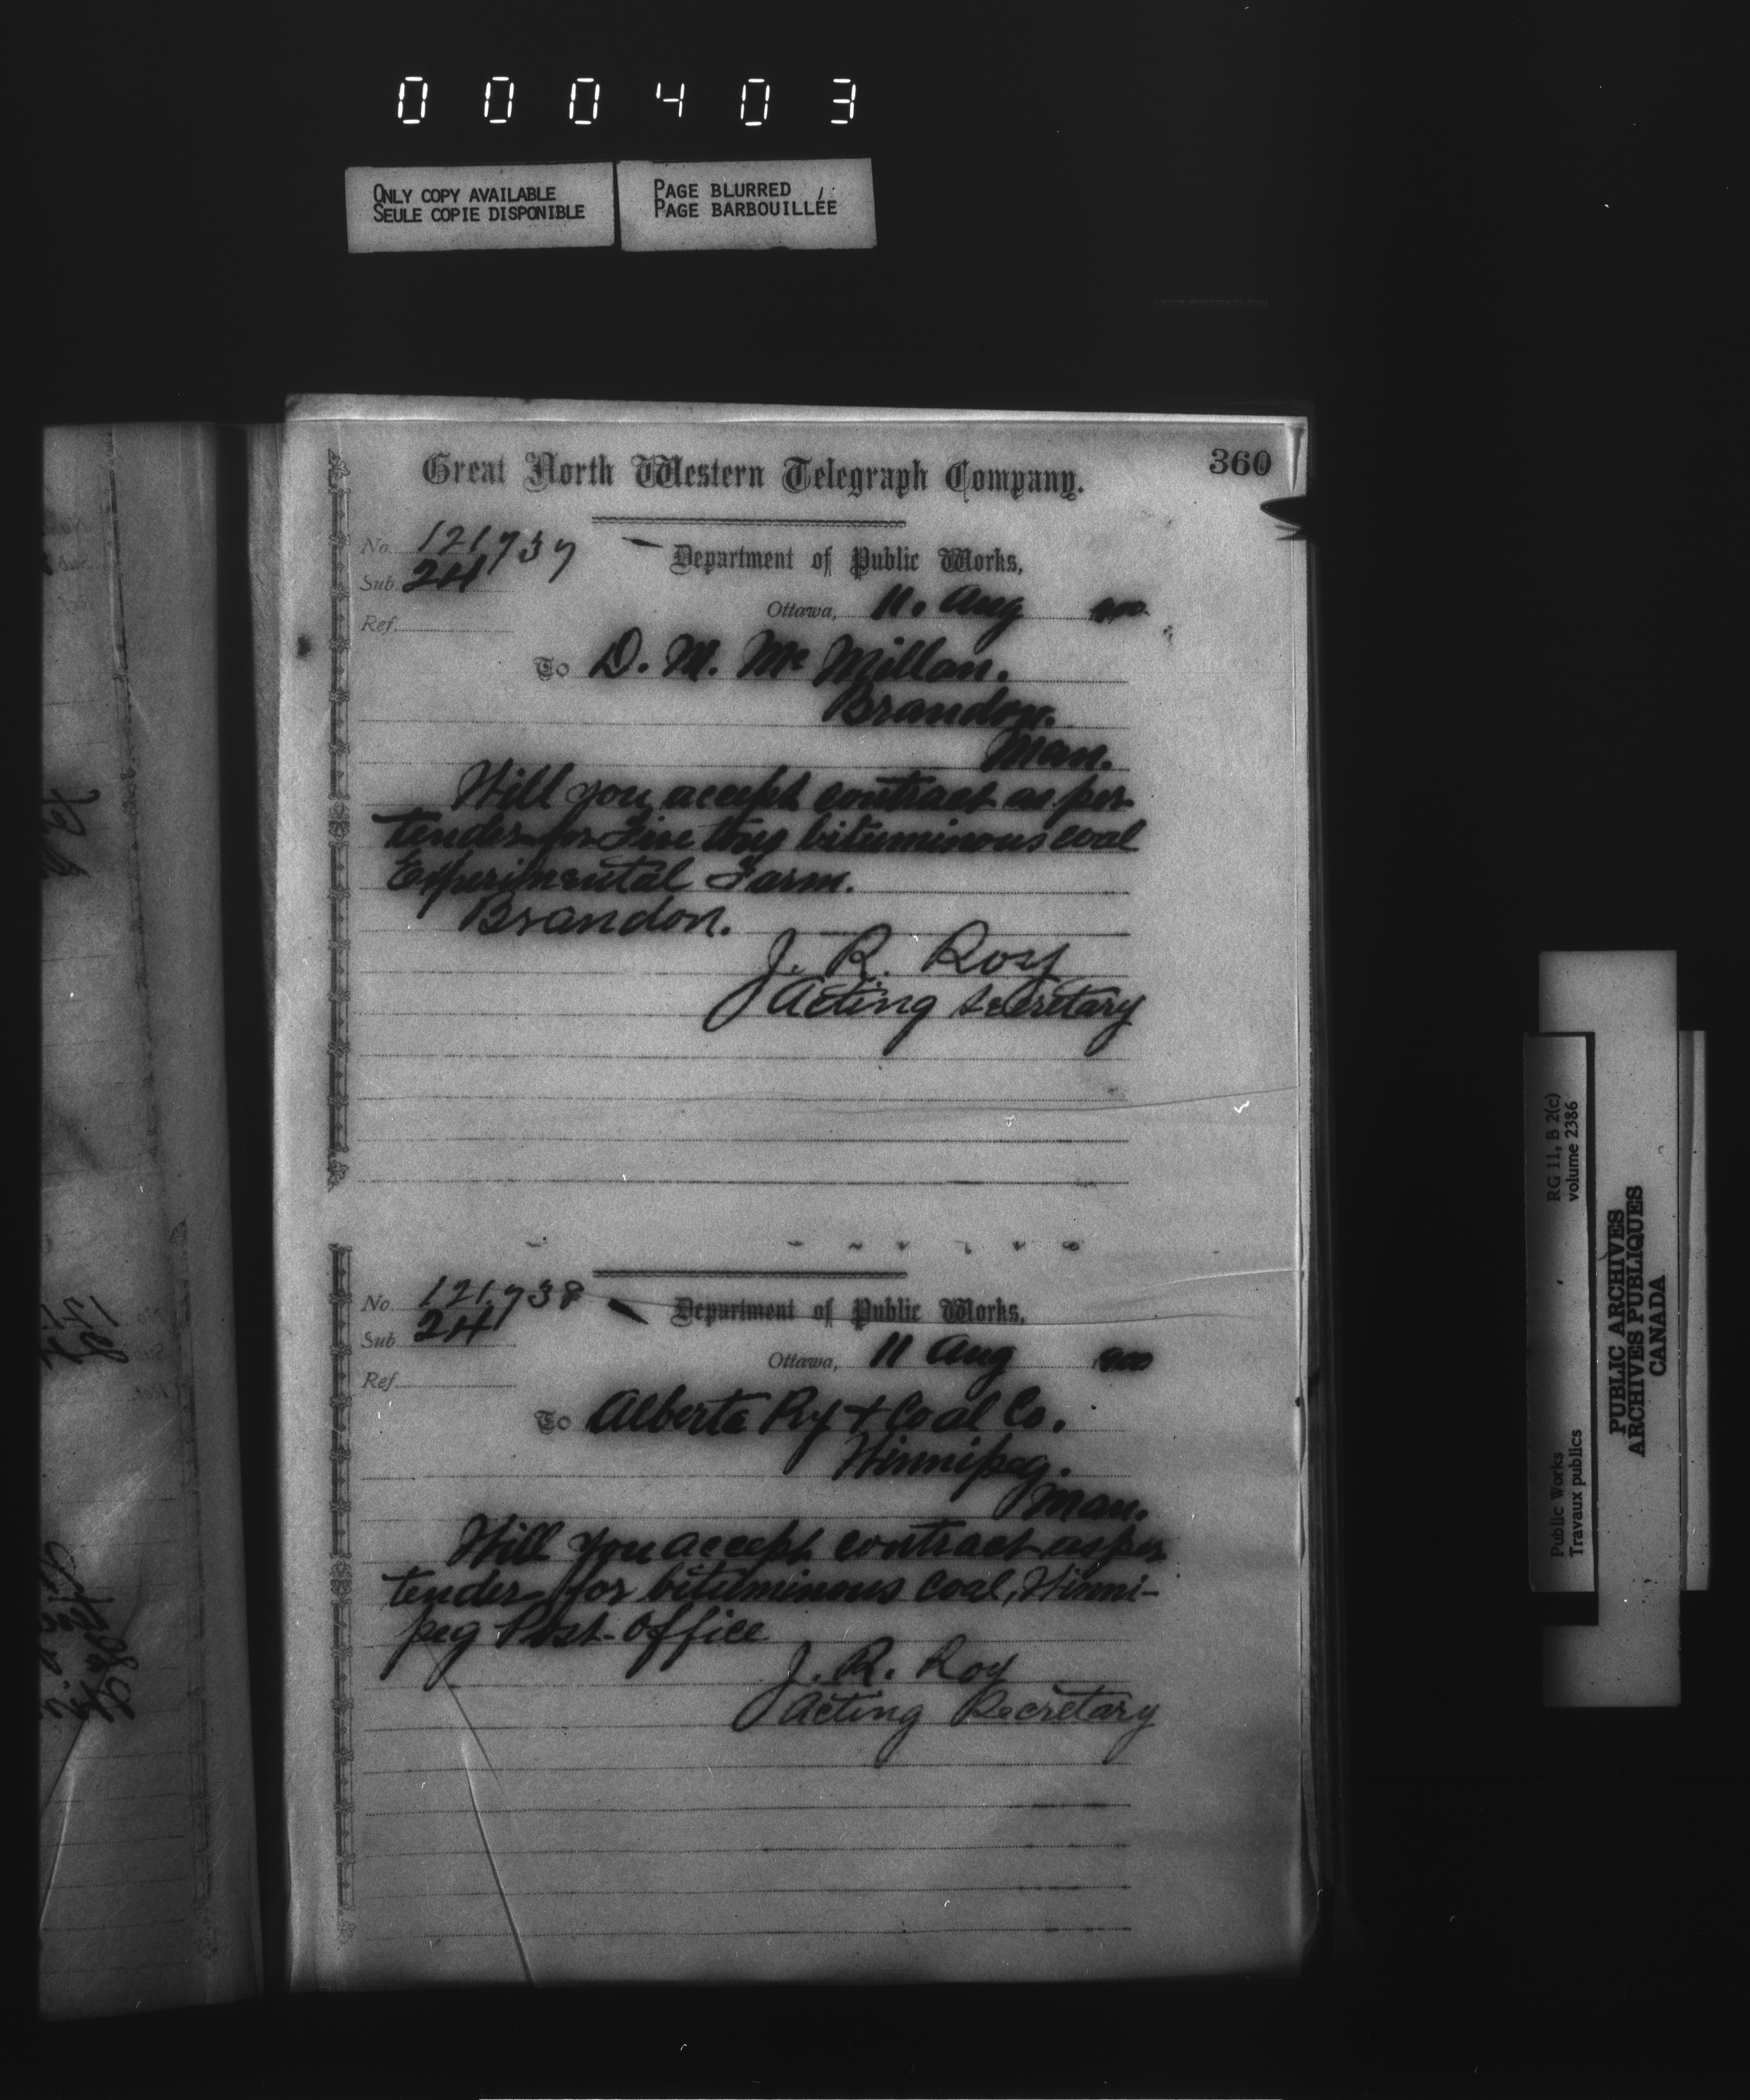 000403
ONLY COPY AVAILABLE
SEULE COPIE DISPONIBLE
PAGE BLURRED
PAGE BARBOUILLÉE
360
Great North Western Telegraph Company.
No. 121737
Department of Public Works,
Sub. 24
Ottawa, 11. Aug 1900
Ref.
To D. M. McMillan.
Brandon.
Man.
Will you accept contract as per
tender for Five tons bituminous coal
Experimental Farm.
Brandon.
J. R. Roy
Acting Secretary
No. 121.738
Department of Public Works,
Sub. 24
Ottawa, 11 Aug 1900
Ref.
To Alberta Ry + Coal Co.
Winnipeg.
Man.
Will you accept contract as per
tender for bituminous coal, Winni-
peg Post-Office
J. R. Roy
Acting Secretary
Public Works
Travaux publics
RG 11, B 2(c)
volume 2386
PUBLIC ARCHIVES
ARCHIVES PUBLIQUES
CANADA